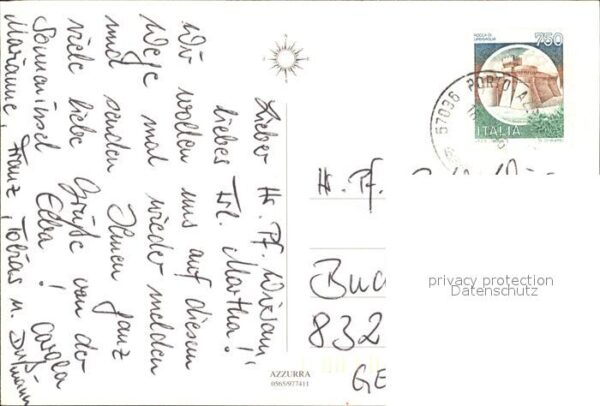 Lieber Hr. Pf. Wiesam,
liebes Frl. Martha!
Wir wollen uns auf diesem
Wege mal wieder melden
und senden Ihnen ganz
viele liebe Grüße von der
Sonneninsel Elba! Carola
Marianne, Franz, Tobias u.
ROCCA DI URBISAGLIA
750
ITALIA
57036 PORTO
Hr. Pf.
Buc
832
GE
privacy protection
Datenschutz
AZZURRA
0565/977411